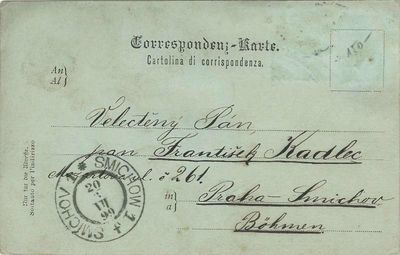 Correspondenz-Karte.
Cartolina di corrispondenza.
150
An
Al
Velectěný Pán,
pan František Kadlec
č 261.
in
a
Praha-Smichov
Böhmen
Nur für die Adresse.
Soltanto per l'indirizzo
SMICHOW 1
SMÍCHOV 1
20
III
99